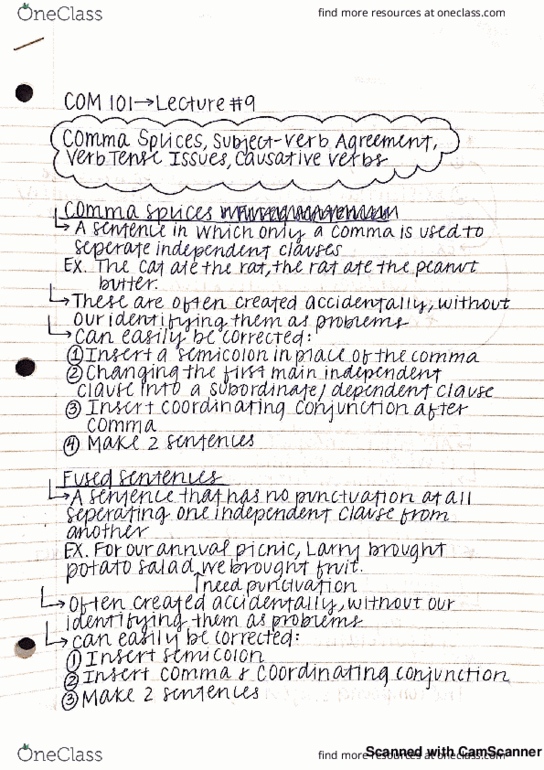 OneClass
find more resources at oneclass.com
COM 101→Lecture #9
Comma Splices, Subject-Verb Agreement,
Verb Tense Issues, Causative Verbs
Comma splices
↳ A sentence in which only a comma is used to
seperate independent clauses
EX. The cat ate the rat, the rat ate the peanut
butter.
↳ These are often created accidentally, without
our identifying them as problems
↳ can easily be corrected:
① Insert a semicolon in place of the comma
② Changing the first main independent
clause into a subordinate/dependent clause
③ Insert coordinating conjunction after
comma
④ Make 2 sentences
Fused sentences
↳ A sentence that has no punctuation at all
seperating one independent clause from
another
EX. For our annual picnic, Larry brought
potato salad we brought fruit.
↑need punctuation
↳ Often created accidentally, without our
identifying them as problems
↳ can easily be corrected:
① Insert semicolon
② Insert comma & coordinating conjunction
③ Make 2 sentences
OneClass
find more resources at oneclass.com
Scanned with CamScanner